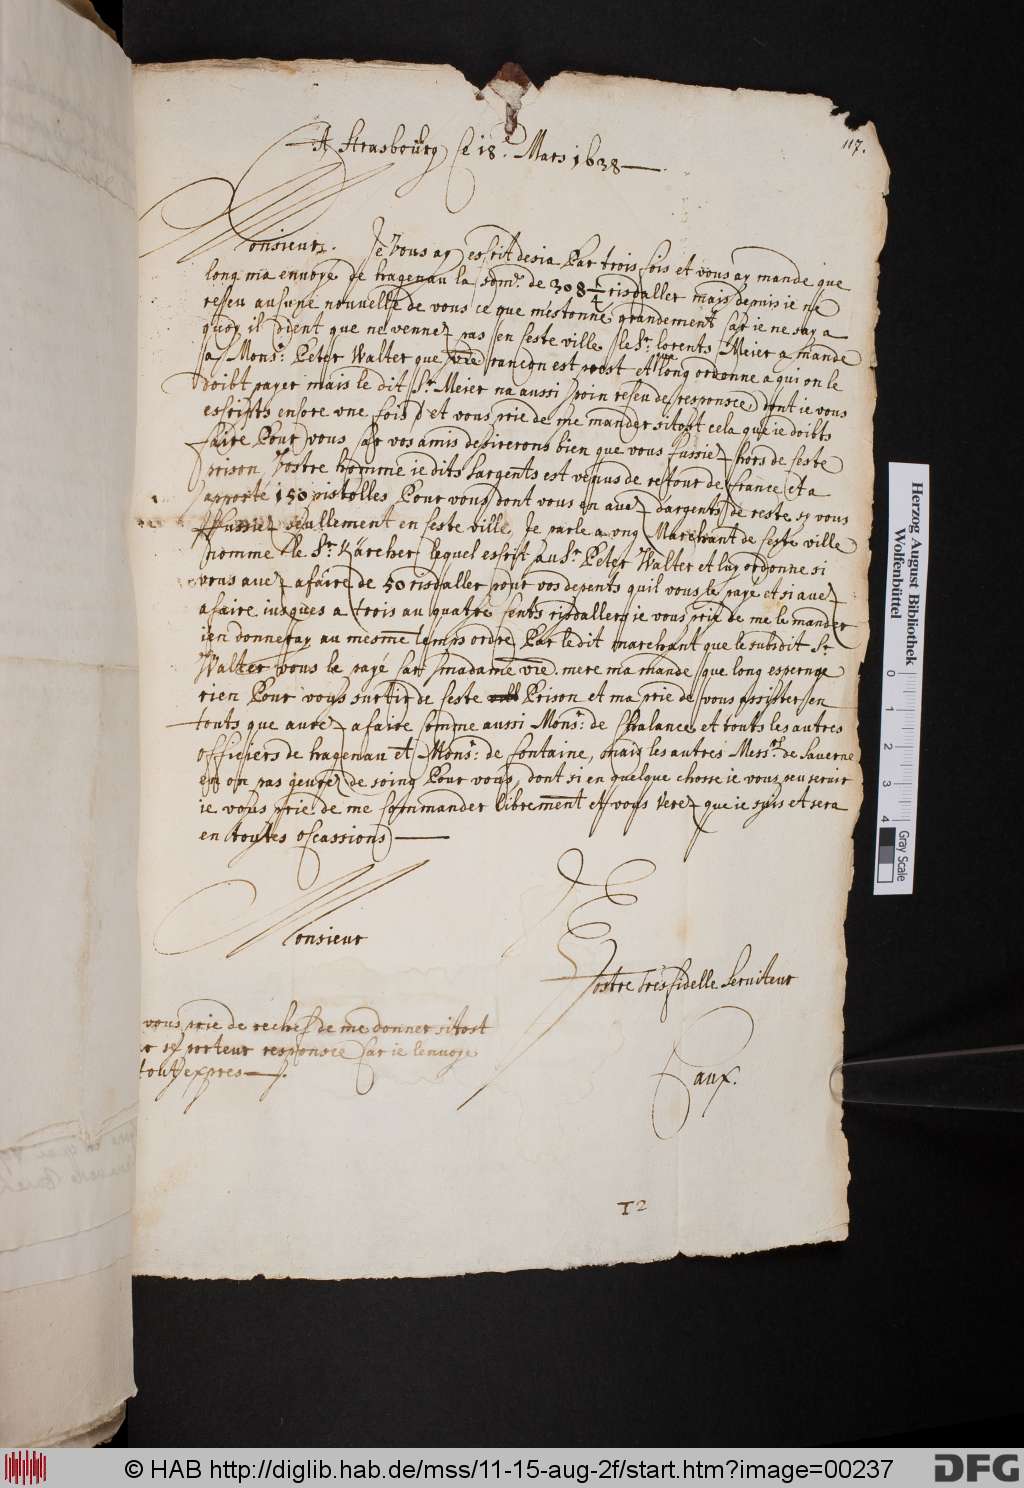 117.
A Strasbourg ce 18.e Mars 1638
Monsieur. Je vous ay escrit desia Par trois fois et vous ay mande que
long ma envoye de hagenau la som.e de 308 1/4 risdaller mais depuis ie ne
reseu aucune nouvelle de vous ce que mestonne grandement car ie ne say a
quoy il tient que ne venne pas en ceste ville le Sr. Lorents Meier a mande
a Mons.r Peter Walter que vre rancon est prest et que long ordonne a qui on le
doibt payer mais le dit Sr. Meier na aussi poin reseu de responsce dont ie vous
escripts encore une fois et vous prie de me mander sitost cela que ie doibts
faire Pour vous car vos amis desirerons bien que vous fussiez hors de ceste
prison Vostre homme ie dits Sargents est venus de retour de france et a
apporte 150 pistolles Pour vous dont vous en avez dargents de reste sy vous
fussiez seullement en ceste ville, Je parle a ung Marchant de ceste ville
nomme le Sr. Kärcher lequel escrit au Sr. Peter Walter et luy ordonne si
vous avez afaire de 50 risdaller pour vos depents quil vous le paye et si avez
afaire iusques a trois au quatre cents risdallers ie vous prie de me le mander
ien donneray au mesme temps ordre Par ledit marchant que le subdit Sr
Walter vous le paye car madame vre. mere ma mande que long espergne
rien Pour vous surtir de ceste Prison et ma prie de vous assister en
touts que avrez afaire comme aussi Mons.r de Chalancee et touts les autres
officiers de hagenau et Mons.r de fontaine, mais les autres Mess.rs de Saverne
en on pas geure de soing Pour vous, dont si en quelque chosse ie vous peu servir
ie vous prie de me commander librement et vous verez que ie suis et sera
en toutes occassions
Monsieur
Vostre tres fidelle serviteur
vous prie de rechef de me donner sitost
porteur responsce car ie lenvoye
tout expres
Faux.
T2
Herzog August Bibliothek
Wolfenbüttel
0 1 2 3 4
Gray Scale
© HAB http://diglib.hab.de/mss/11-15-aug-2f/start.htm?image=00237
DFG